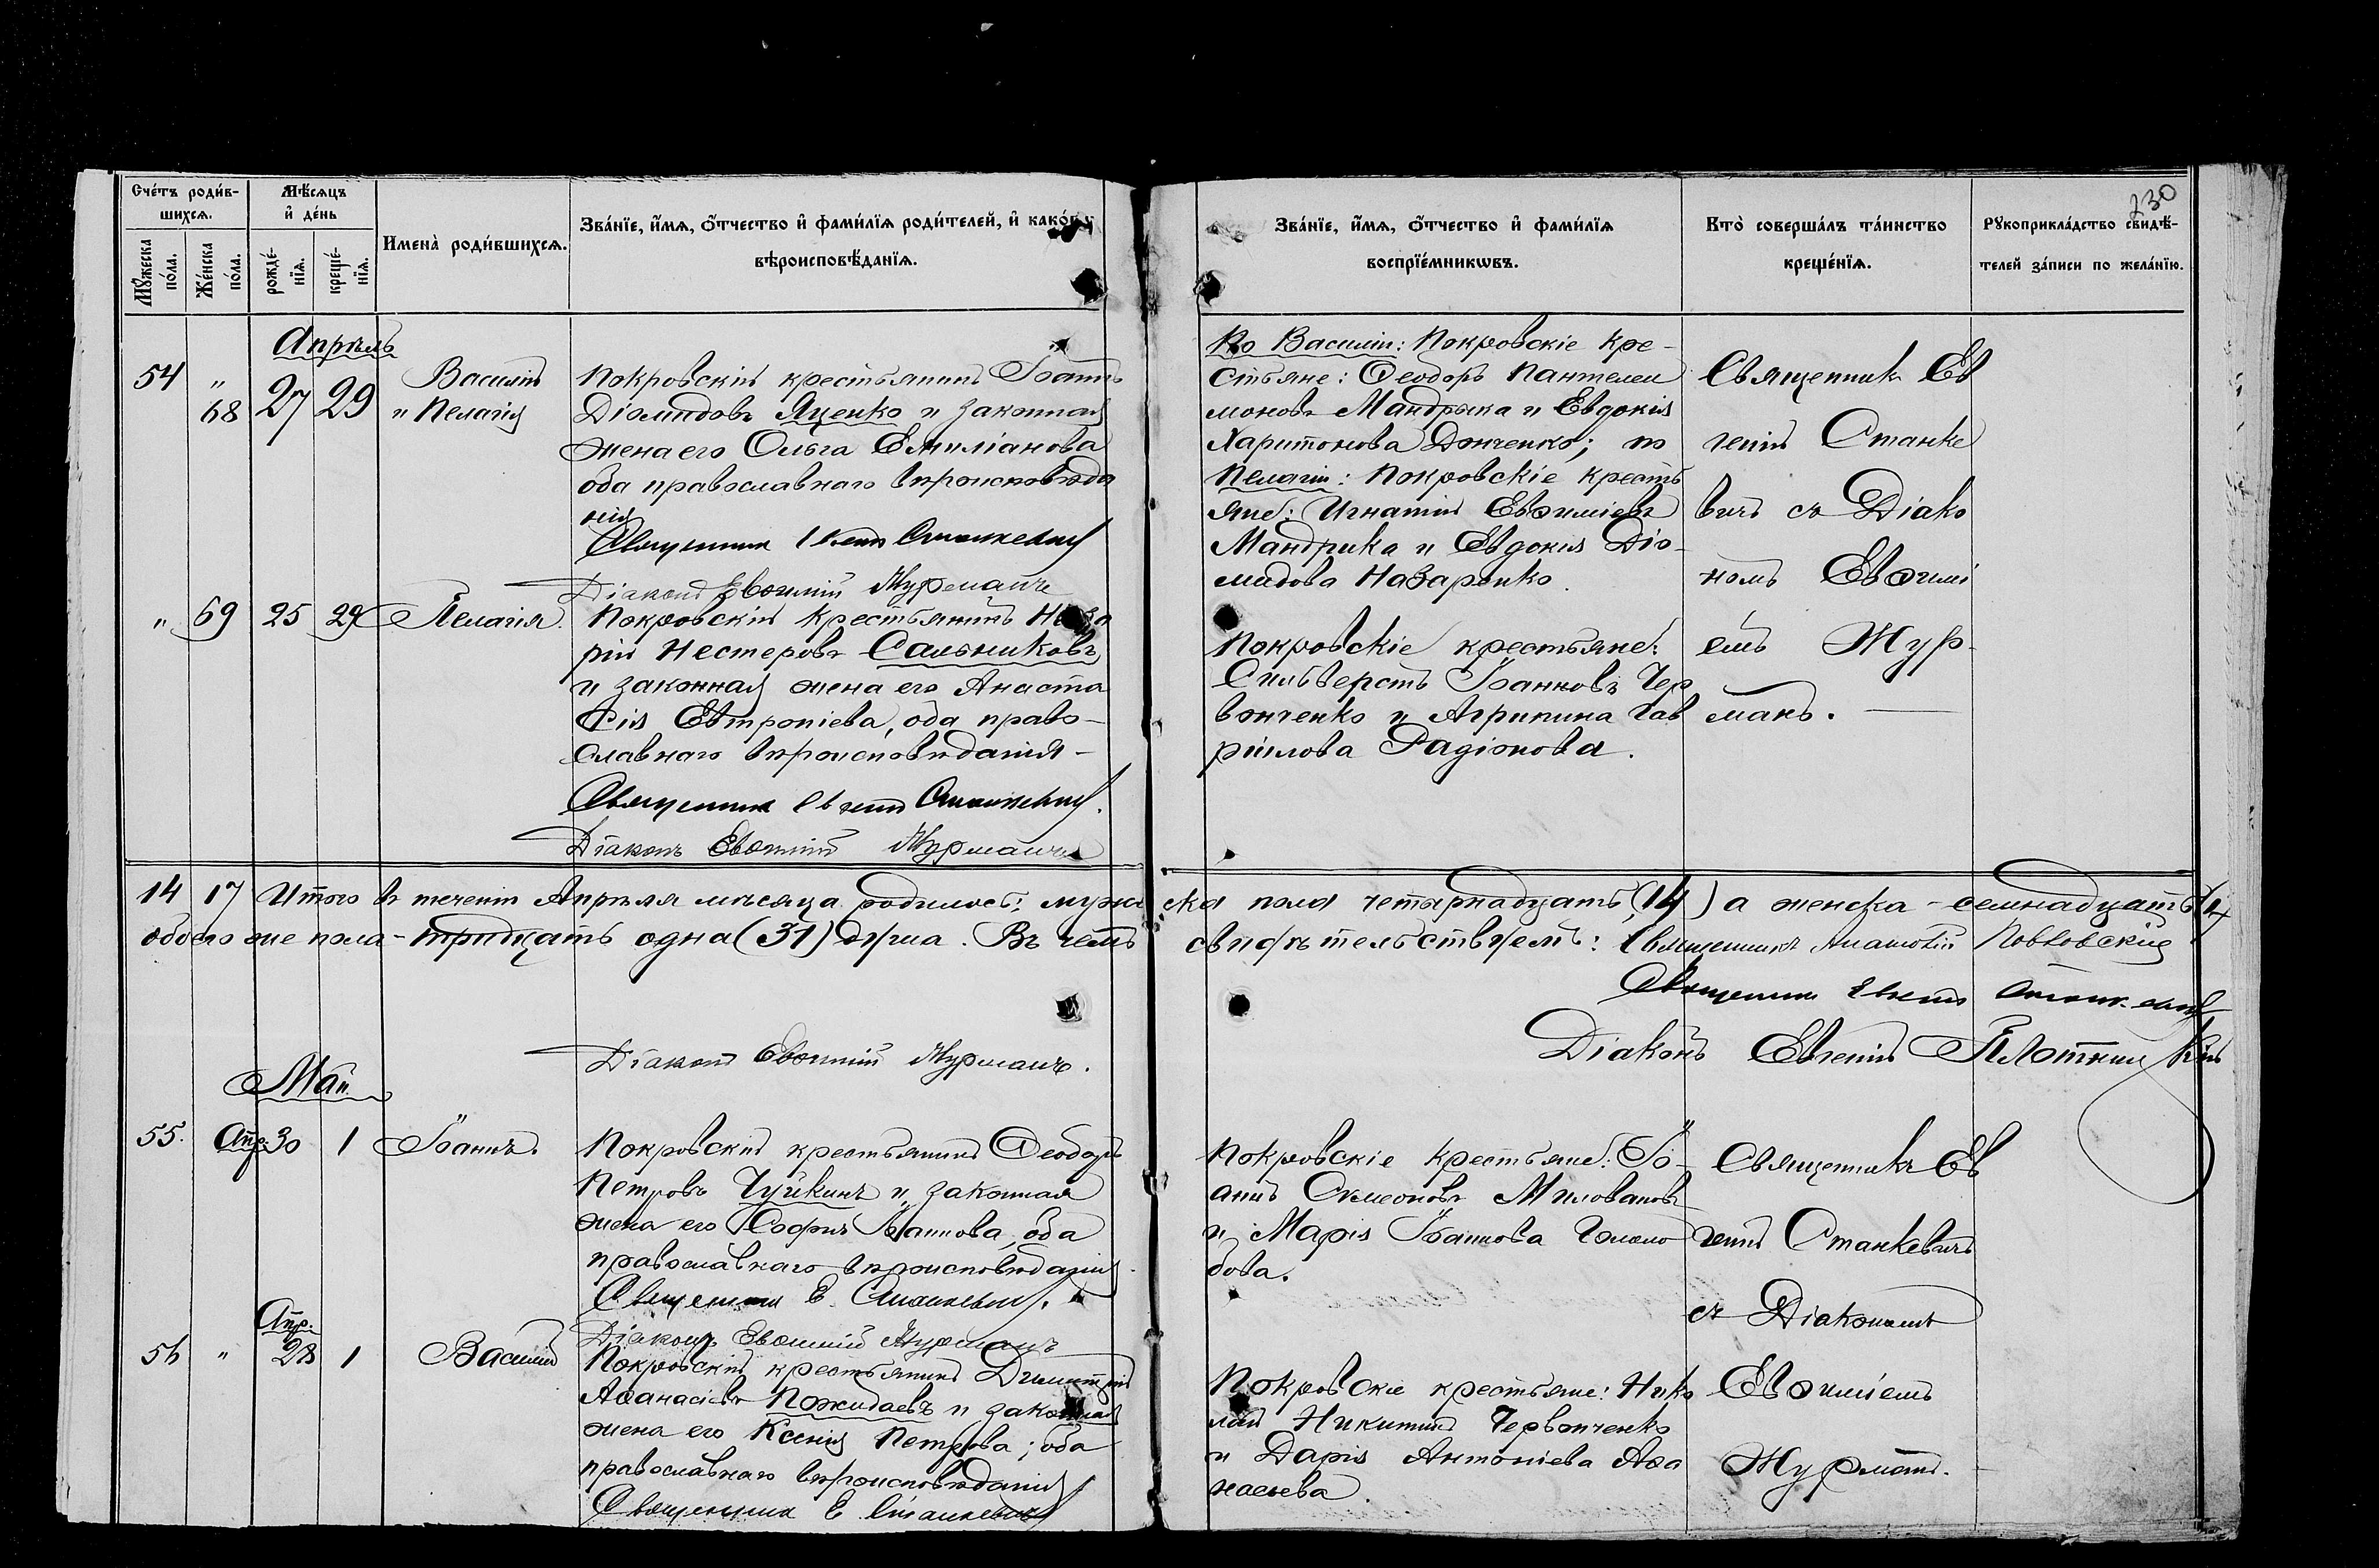 230
Счетъ родив-
шихся.
Мѣсяцъ
и день
Мужеска
пола.
Женска
пола.
рожде-
нія.
креще-
нія.
Имена родившихся.
Званіе, имя, отчество и фамилія родителей, и какого
вѣроисповѣданія.
Званіе, имя, отчество и фамилія
воспріемниковъ.
Кто совершалъ таинство
крещенія.
Рукоприкладство свидѣ-
телей записи по желанію.
Апрѣль
54 "
68 27 29
Василій
и Пелагія
Покровскій крестьянинъ Іоаннъ
Діомидовъ Яценко и законная
жена его Ольга Емиліанова
оба православнаго вѣроисповѣда
нія
Священникъ Евгеній Станкевичъ
Діаконъ Евѳимій Журманъ
По Василіи: Покровскіе кре-
стьяне: Ѳеодоръ Пантелеи
моновъ Мандрыка и Евдокія
Харитонова Донченко; по
Пелагіи: Покровскіе кресть
яне: Игнатій Евѳиміевъ
Мандрика и Евдокія Діо-
мидова Назаренко.
Священникъ Ев
геній Станке
вичъ съ Діако
номъ Евѳимі
емъ Жур-
манъ.
" 69 25 29 Пелагія.
Покровскій крестьянинъ Наза
рій Нестеровъ Сальниковъ
и законная жена его Анаста
сія Евтропіева, оба право-
славнаго вѣроисповѣданія -
Священникъ Евгеній Станкевичъ.
Діаконъ Евѳимій Журманъ
Покровскіе крестьяне:
Сильверстъ Іоанновъ Чер
вонченко и Агрипина Гав
ріилова Радіонова.
14 17 Итого въ теченіи Апрѣля мѣсяца родилось: муже ска пола четырнадцать (14) а женска - семнадцать (17
обоего же пола - тридцать одна (31) душа. Въ чемъ свидѣтельствуемъ: Священникъ Анатолій
Священникъ Евгеній Станкевичъ
Діаконъ Евѳимій Журманъ.
Діаконъ Евгеній Плотницкій
Май
55. Апр: 30 1 Іоаннъ.
Покровскій крестьянинъ Ѳеодоръ
Петровъ Чуйкинъ и законная
жена его Софія Іоаннова, оба
православнаго вѣроисповѣданія
Священникъ Е. Станкевичъ.
Діаконъ Евѳимій Журманъ
Покровскіе крестьяне: Іо-
аннъ Симеоновъ Миловановъ
и Марія Іоаннова Голомо
бова.
Священникъ Ев
геній Станкевичъ
съ Діакономъ
Евѳиміемъ
Журманъ.
Апр:
56 " 28 1 Василій
Покровскій крестьянинъ Димитрій
Аѳанасіевъ Пожидаевъ и законная
жена его Ксенія Петрова; оба
православнаго вѣроисповѣданія
Священникъ Е. Станкевичъ
Покровскіе крестьяне: Нико
лай Никитинъ Червонченко
и Дарія Антоніева Аѳа
насьева.